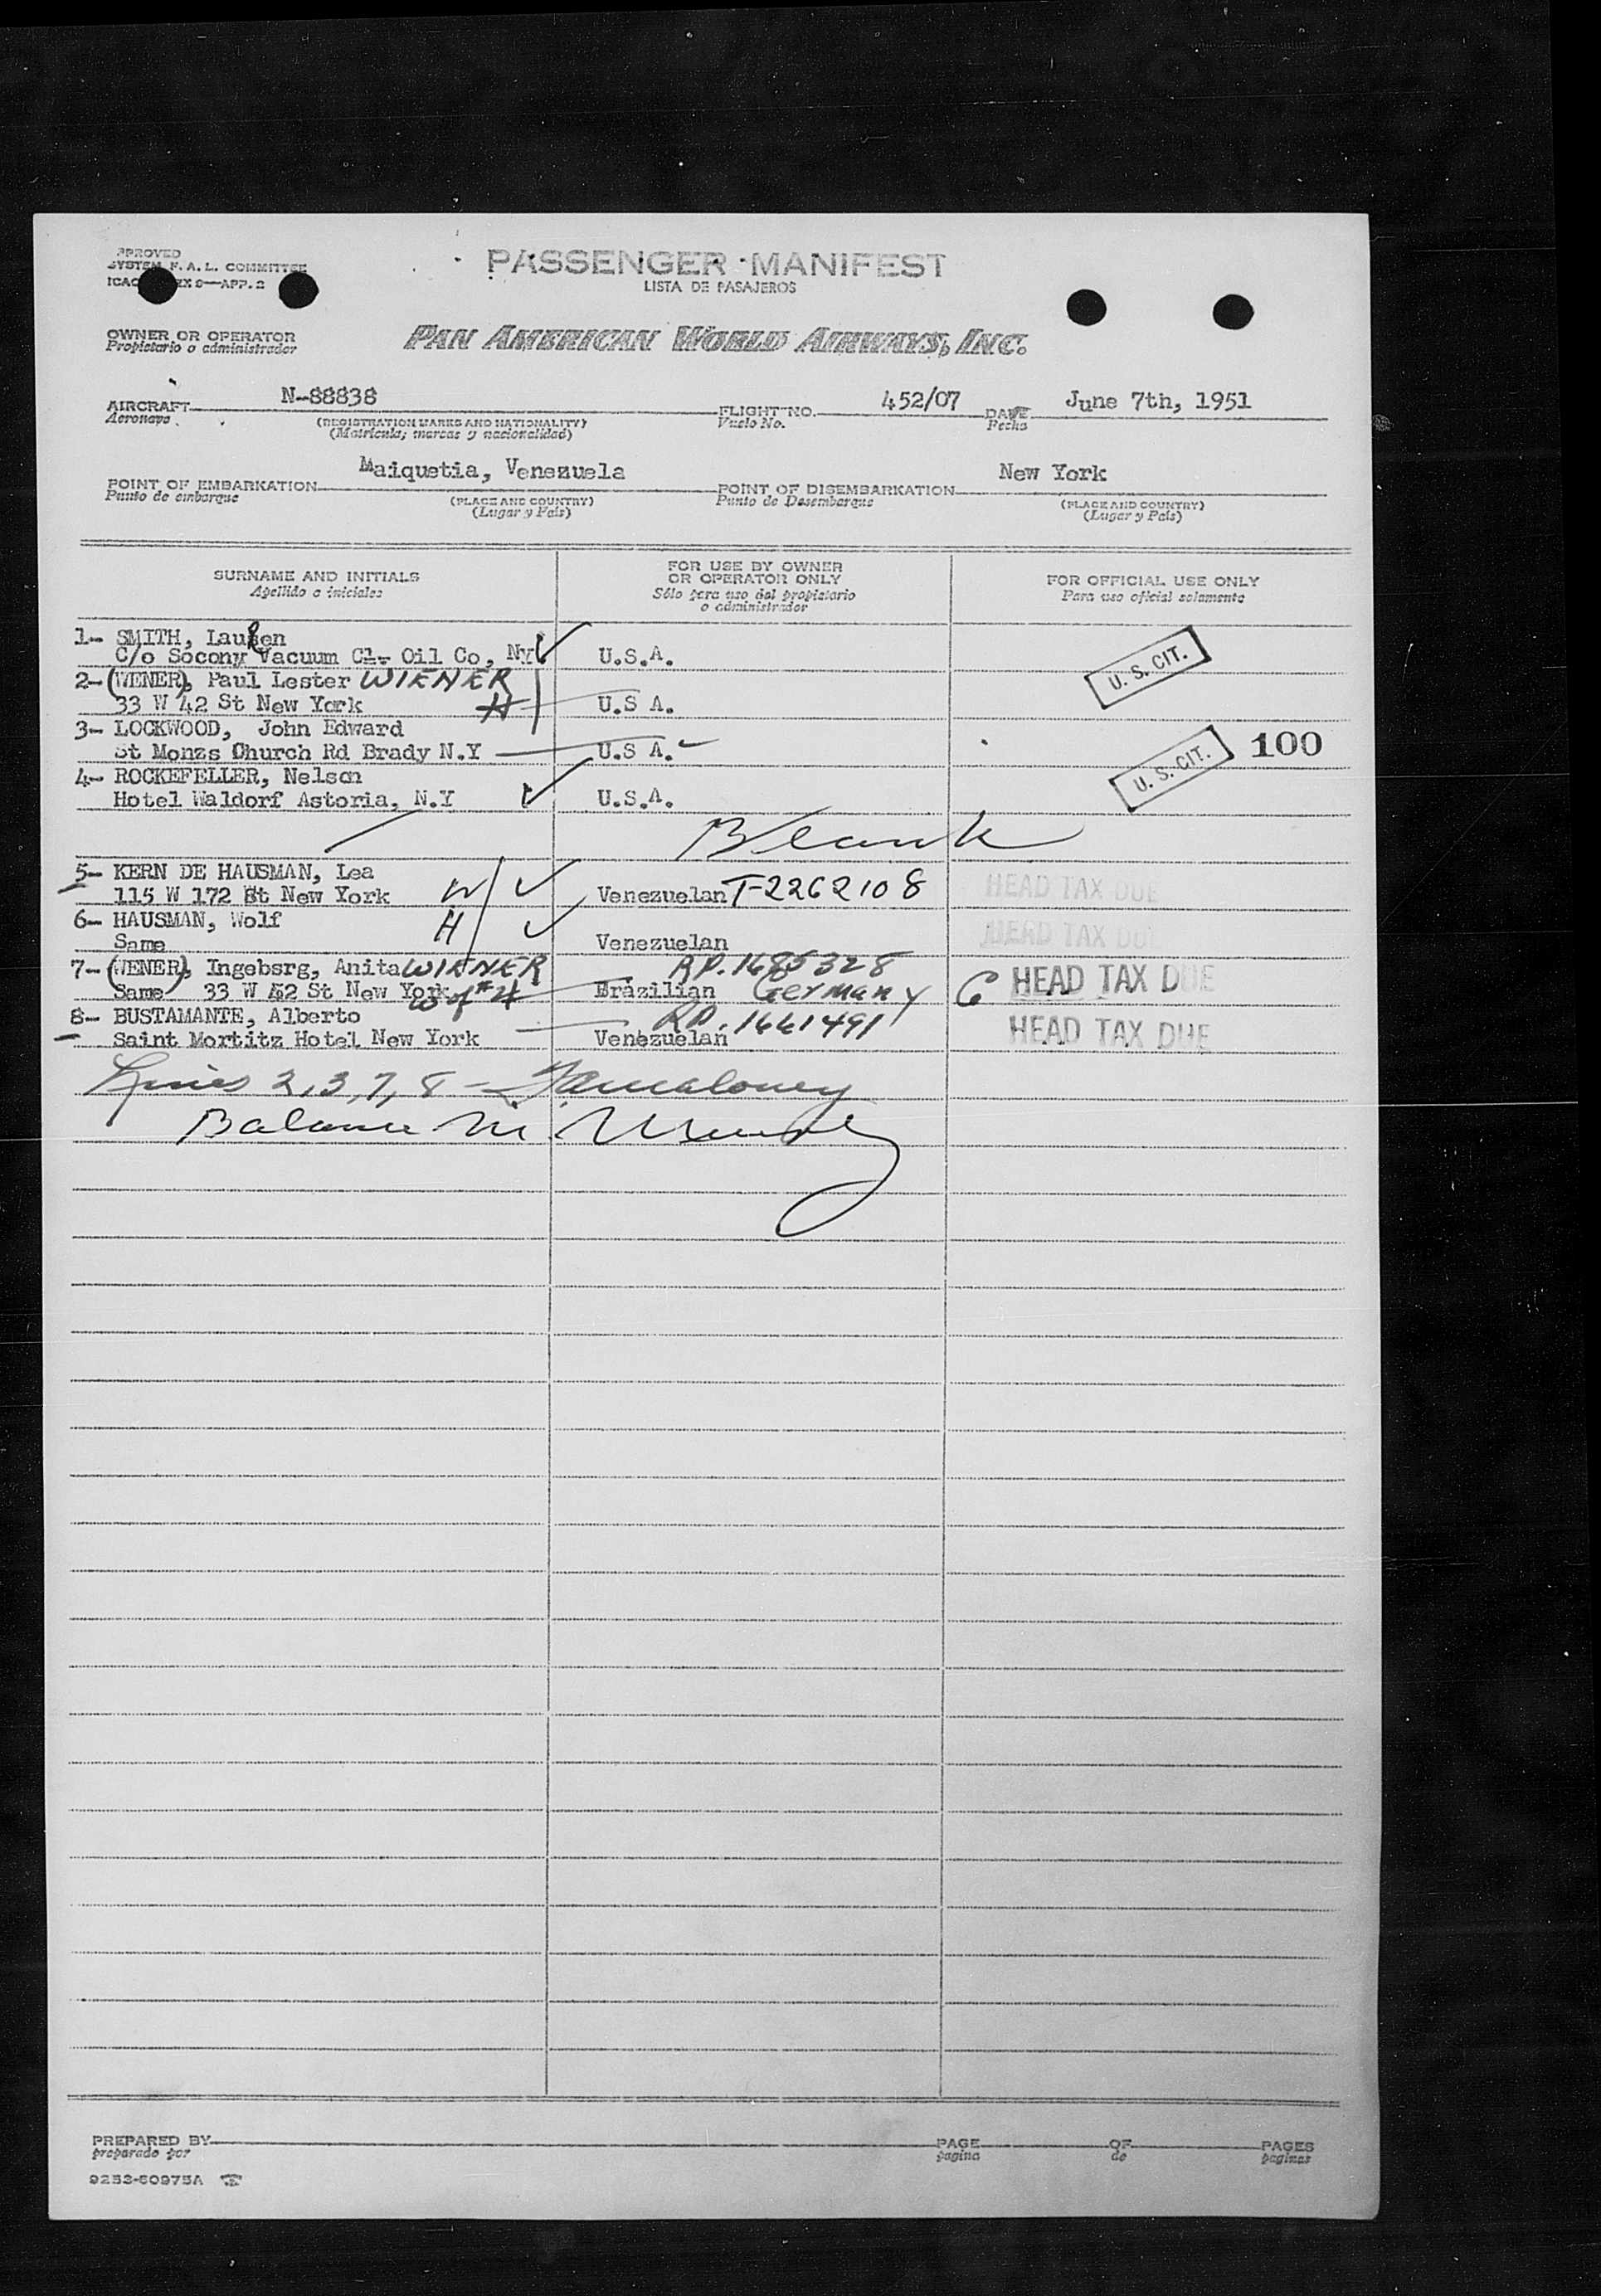 PPROVED
SYSTEM F. A. L. COMMITTEE
ICAO EX 9—APP. 2
PASSENGER MANIFEST
LISTA DE PASAJEROS
OWNER OR OPERATOR
Propietario o administrador
PAN AMERICAN WORLD AIRWAYS, INC.
AIRCRAFT N-88838 FLIGHT NO. 452/07 DATE June 7th, 1951
Aeronave (REGISTRATION MARKS AND NATIONALITY) Vuelo No. Fecha
(Matricula; marcas y nacionalidad)
POINT OF EMBARKATION Maiquetia, Venezuela POINT OF DISEMBARKATION New York
Punto de embarque (PLACE AND COUNTRY) Punto de Desembarque (PLACE AND COUNTRY)
(Lugar y País) (Lugar y País)
SURNAME AND INITIALS
Apellido e iniciales
FOR USE BY OWNER
OR OPERATOR ONLY
Sólo para uso del propietario
o administrador
FOR OFFICIAL USE ONLY
Para uso oficial solamente
1- SMITH, LauRen
C/o Socony Vacuum Cl. Oil Co, NY U.S.A. U. S. CIT.
2- (WENER), Paul Lester WIENER
33 W 42 St New York H U.S A.
3- LOCKWOOD, John Edward
St Monzs Church Rd Brady N.Y U.S A. U. S. CIT. 100
4- ROCKEFELLER, Nelson
Hotel Waldorf Astoria, N.Y U.S.A.
Blank
5- KERN DE HAUSMAN, Lea
115 W 172 St New York W Venezuelan T-2262108 HEAD TAX DUE
6- HAUSMAN, Wolf H
Same Venezuelan HEAD TAX DUE
7- (WENER), Ingebsrg, Anita WIENER RP. 1685328
Same 33 W 42 St New York W of #4 Brazilian Germany C HEAD TAX DUE
8- BUSTAMANTE, Alberto RP. 1661491
Saint Mortitz Hotel New York Venezuelan HEAD TAX DUE
Lines 2, 3, 7, 8 -
Balance
PREPARED BY PAGE OF PAGES
preparado por pagina de paginas
9253-60975A